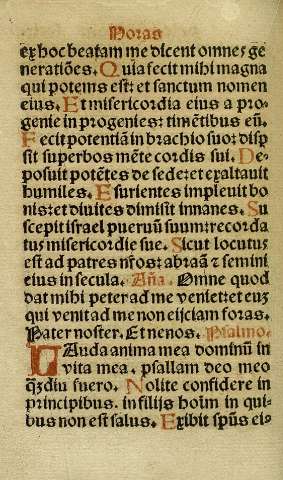 Horas
ex hoc beatam me dicent omnes ge
neratiões. Quia fecit mihi magna
qui potens est: et sanctum nomen
eius. Et misericordia eius a pro-
genie in progenies: timẽtibus eũ.
Fecit potentiã in brachio suo: disp
sit superbos mẽte cordis sui. De-
posuit potẽtes de sede: et exaltauit
humiles. Esurientes impleuit bo
nis: et diuites dimisit innanes. Su
scepit israel pueruũ suum: recorda
tus misericordie sue. Sicut locutus
est ad patres nr̃os: abraã ⁊ semini
eius in secula. Aña. Omne quod
dat mihi pater ad me veniet: et euȝ
qui venit ad me non eijciam foras.
Pater noster. Et ne nos. Psalmo.
LAuda anima mea dominũ in
vita mea. psallam deo meo
qȝdiu fuero. Nolite confidere in
principibus. in filijs hoĩm in qui-
bus non est salus. Exibit sp̃us ei-